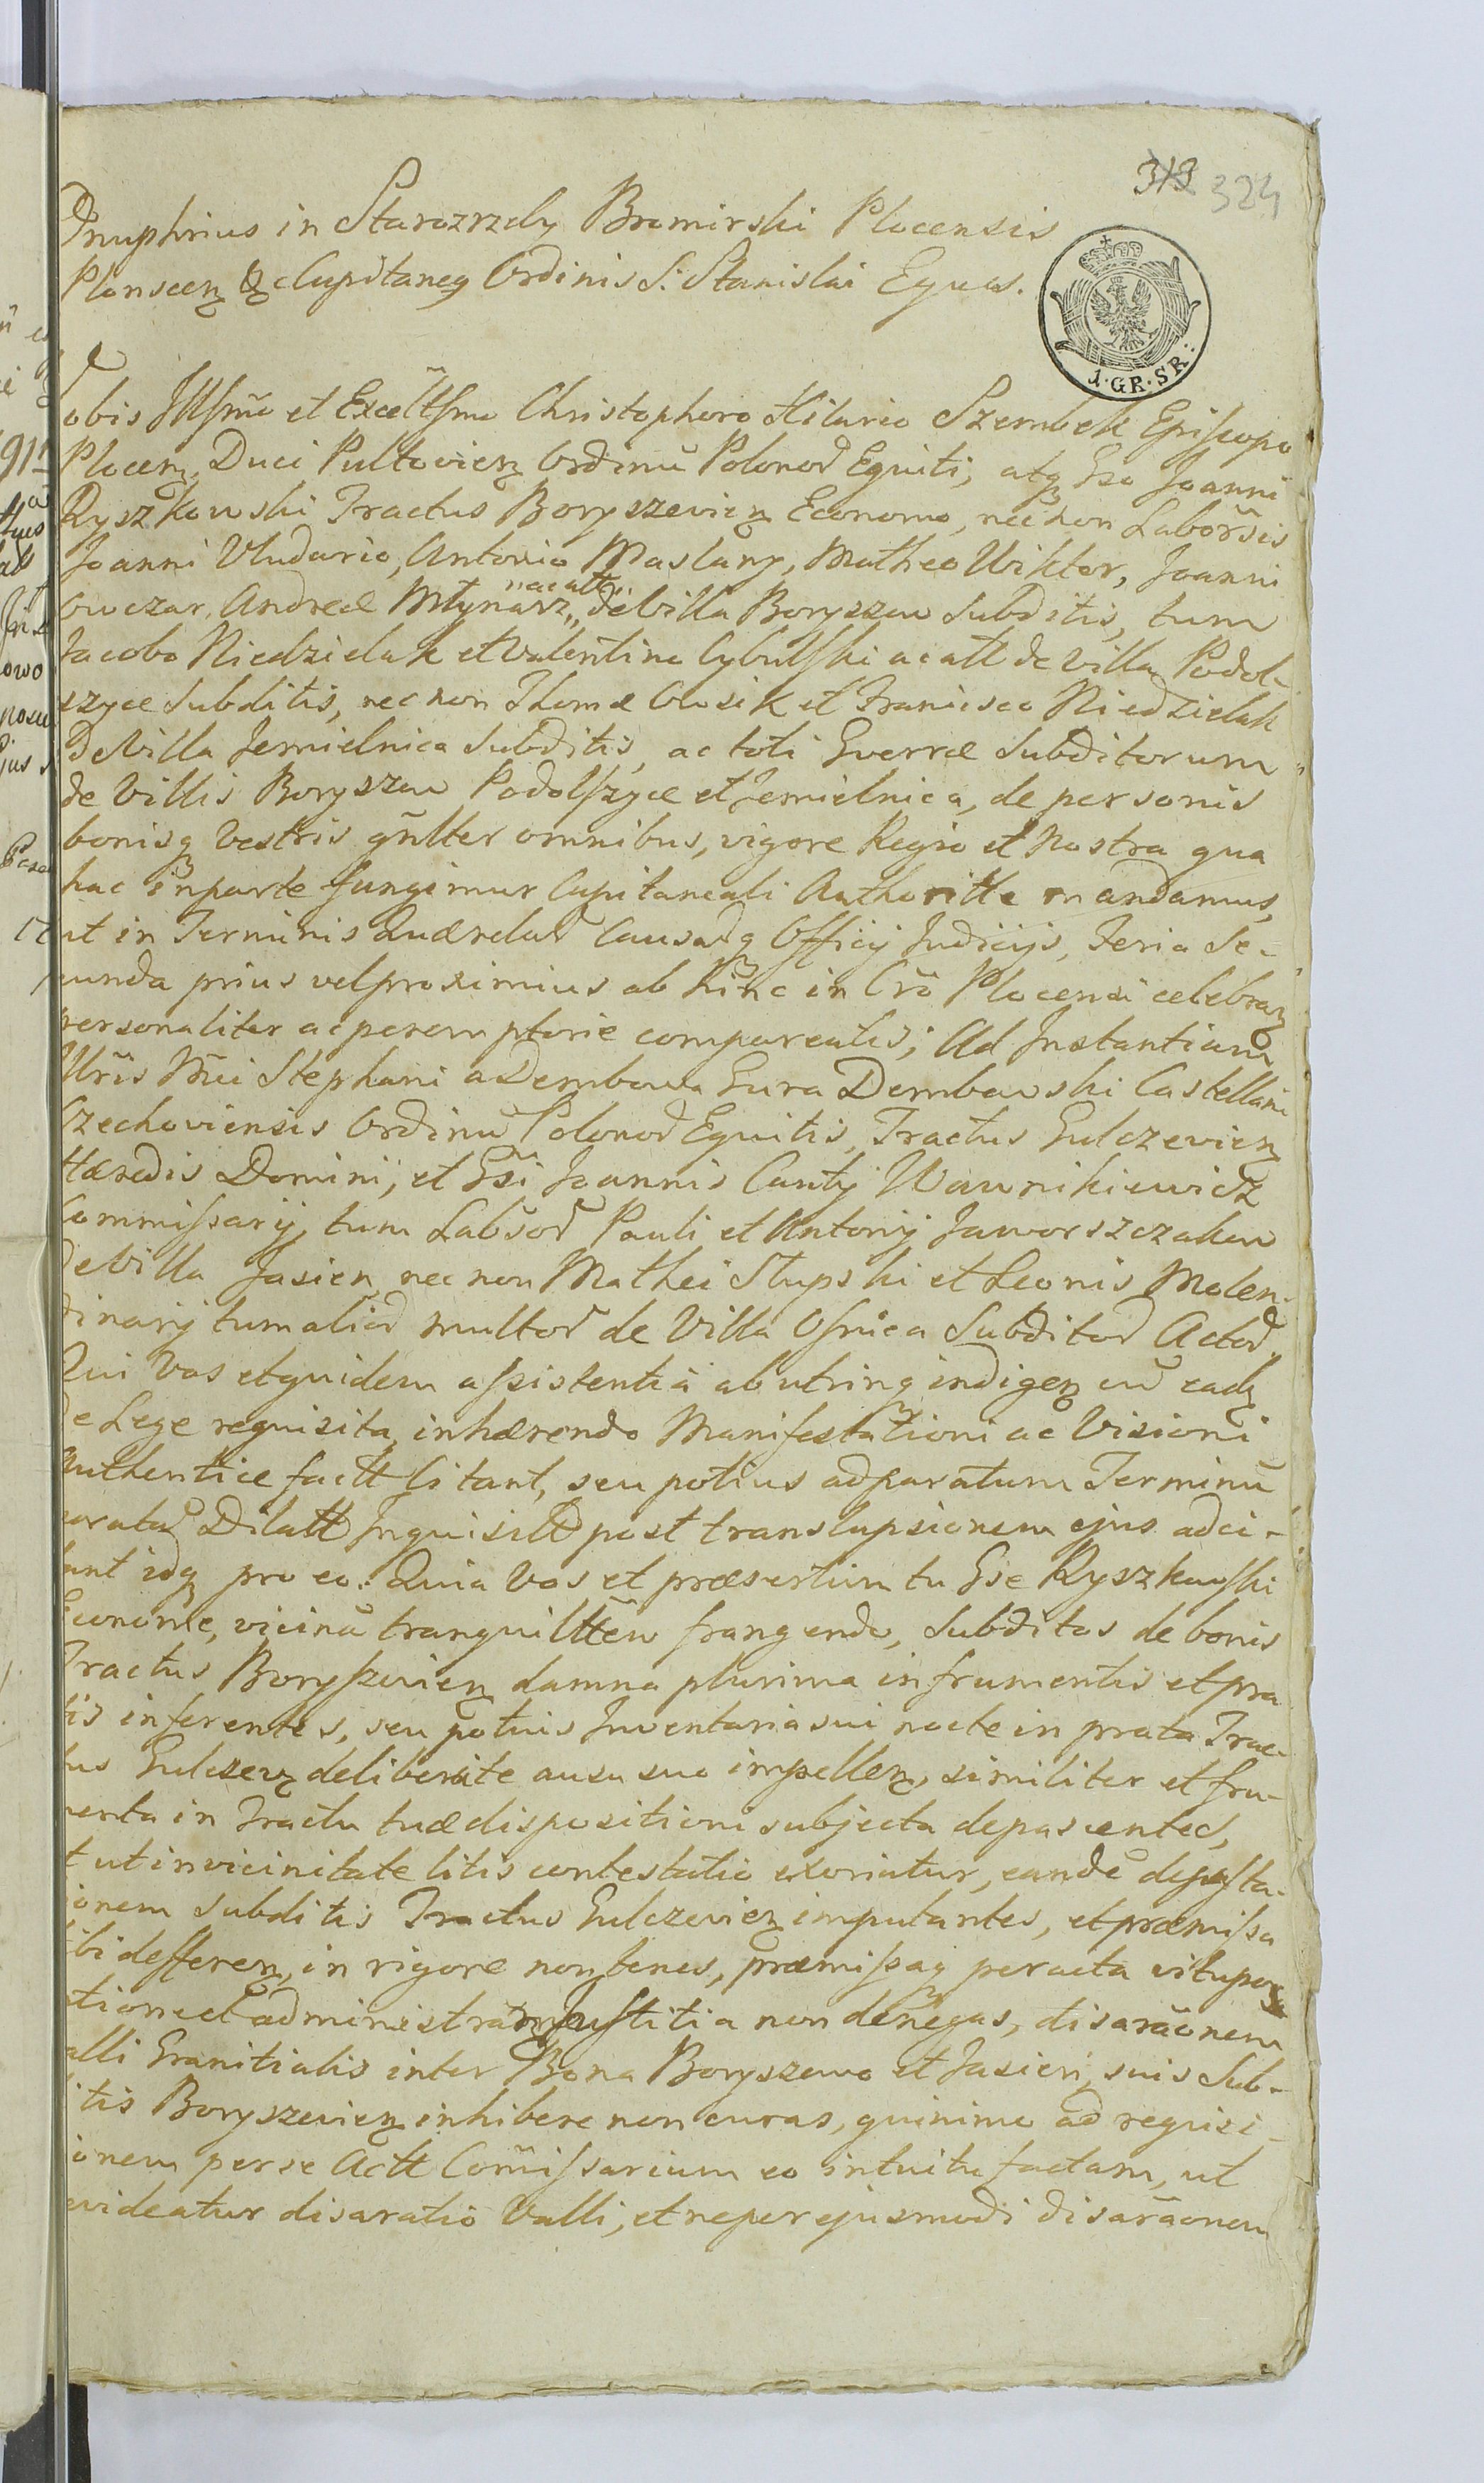 319 324
Onuphrius in Starozrzeby Bromirski Plocensis
Plonscen &c Capitaneg Ordinis S. Stanislai Eques.
1. GR. SR:
Vobis Illsmo et Excelltsmo Christophoro Hilario Szembek Episcopo
Plocen, Duci Pultovien Ordinũ Polonoꝝ Equiti, atq Gso Joanni
Ryszkowski Tractus Boryszevien Economo, nec non Laborsis
Joanni Vludario, Antonio Maslany, Matheo Wiktor, Joanni
Owczar, Andreæ Młynarz „ac att„ de Villa Boryszew Subditis, tum
Jacobo Niedzielak et Valentino Cybulski ac att de Villa Podol-
szyce Subditis, nec non Thomæ Osik et Francisco Niedzielak
De Villa Jemielnica Subditis, ac toti Gverræ Subditorum
de Villis Boryszew Podolszyce et Jemielnica, de personis
bonisq Vestris gñlter omnibus, vigore Regio et Nostra qua
hac in parte fungimur Capitaneali Authoritte mandamus,
ut in Terminis Quærelaꝝ Causaꝝq Officij Judicijs, Feria Se-
cunda prius vel proximius ab hinc in Crõ Plocensi celebran
personaliter ac peremptorie compareatis; Ad Instantiam
Mfris Mñi Stephani a Dembowa Gura Dembowski Castellani
Czechoviensis Ordinũ Polonoꝝ Equitis, Tractus Gulczevien
Hæredis Domini, et Gsi Joannis Canty Wawnikiewicz
Commissarij, tum Labsoꝝ Pauli et Antonij Jaworszczakow
de Villa Jasien, nec non Mathei Słupski et Leonis Molen-
dinarij tum alioꝝ multoꝝ de Villa Osnica Subditoꝝ Actoꝝ.
Qui Vos et quidem assistentiã ab utrinq indigen cũ eadem
de Lege requisita, inhærendo Manifestationi ac Visioni
Authentice factt Citant, seu potius ad paratum Terminũ
paratæ Dilatt Inquisitt post translapsionem ejus adci-
tant idq pro eo. Quia Vos et præsertim tu Gse Ryszkowski
Econome, vicinã tranquilltten frangendo, Subditos de bonis
Tractus Boryszevien damna plurima in frumentis et pra-
tis inferentes, seu potius Inventaria sui nocte in prata Trac-
tus Gulczev deliberate ausu suo impellen, similiter et fru-
menta in Tractu tuæ dispositioni subjecta depascentes,
et ut in vicinitate litis contestatio exoriatur, eandẽ depasta-
tionem Subditis Tractus Gulczevien imputantes, et præmissa
tibi defferen, in rigore non tenes, præmissaq peracta
et administran Justitia non denegas, disarãonem
Valli Granitialis inter Bona Boryszewo et Jasien, suis Sub-
ditis Boryszevien inhibere non curas, quinimo ad requisi-
tionem per se Actt Comissarium eo intuitu factam, ut
evideatur disaratio Valli, et ne per ejusmodi disarãonem